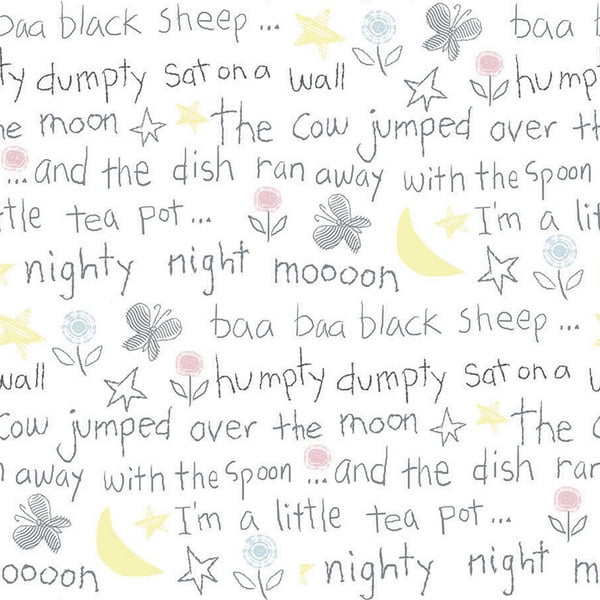 baa black sheep ... baa b
ty dumpty sat on a wall humpt
he moon the cow jumped over th
...and the dish ran away with the spoon
ttle tea pot... I'm a lit
nighty night moooon
baa baa black sheep ...
wall humpty dumpty sat on a w
cow jumped over the moon the c
n away with the spoon ...and the dish ran
I'm a little tea pot...
oooon nighty night m